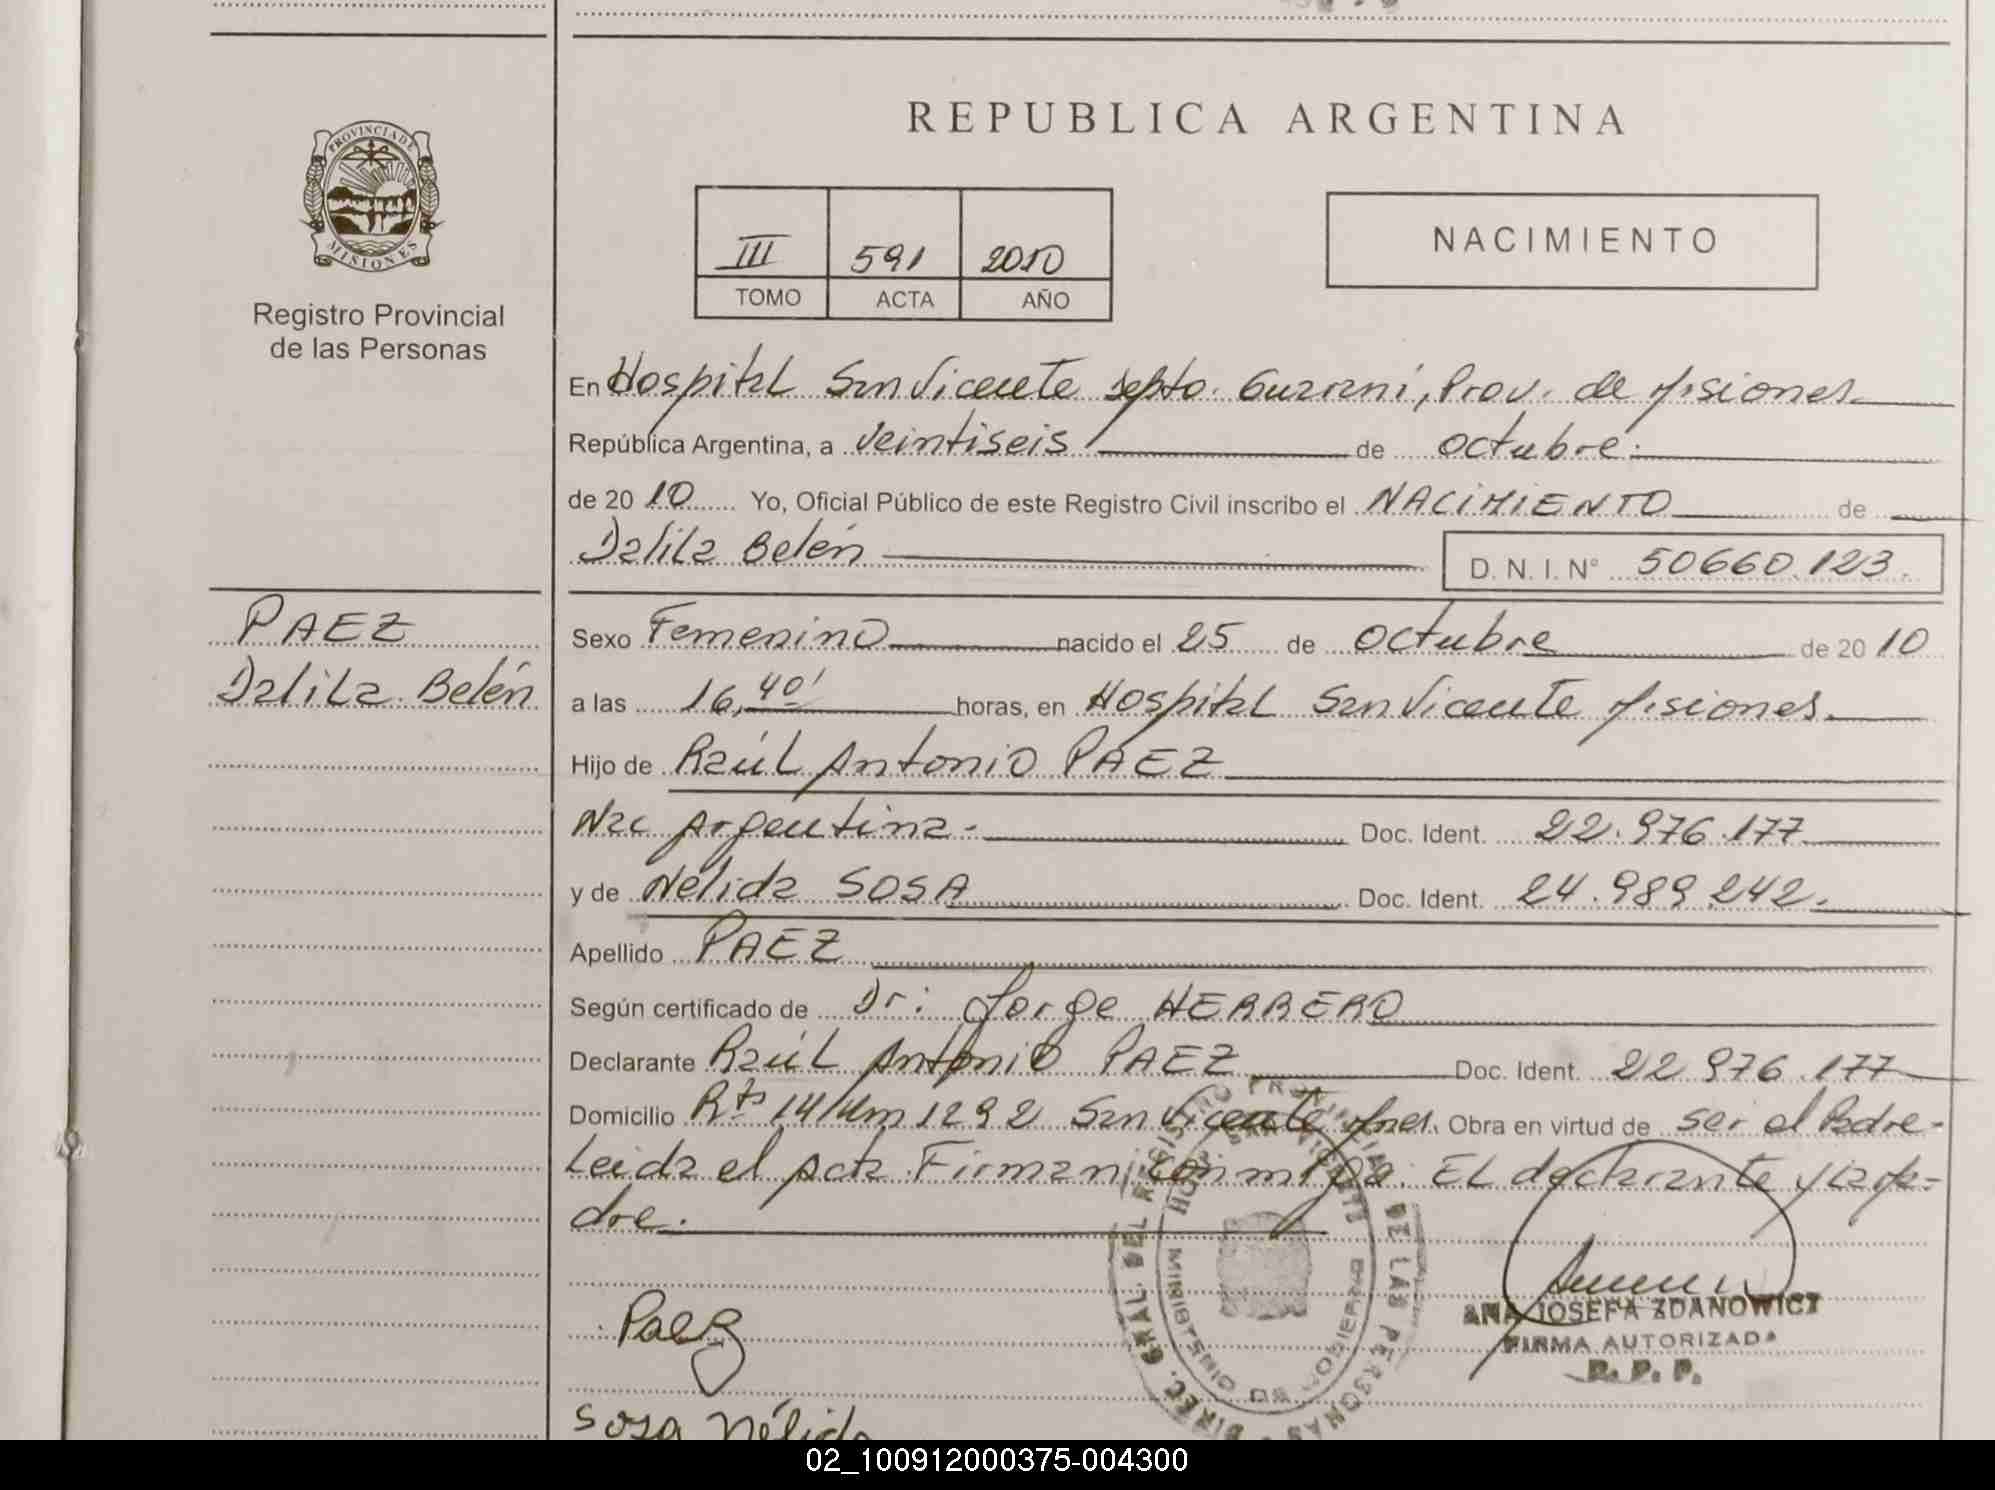 REPUBLICA ARGENTINA
PROVINCIA DE
MISIONES
Registro Provincial
de las Personas
III 591 2010
TOMO ACTA AÑO
NACIMIENTO
En Hospital San Vicente Depto. Guaraní, Prov. de Misiones.
República Argentina, a veintiseis de octubre.
de 20 10 Yo, Oficial Público de este Registro Civil inscribo el NACIMIENTO de
Dalila Belén D. N. I. N° 50660.123.
PAEZ
Dalila Belén
Sexo Femenino nacido el 25 de octubre de 20 10
a las 16,40' horas, en Hospital San Vicente Misiones.
Hijo de Raúl Antonio PAEZ
Nac Argentina. Doc. Ident. 22.976.177
y de Nélida SOSA Doc. Ident. 24.989.242.
Apellido PAEZ
Según certificado de Dr: Jorge HERRERO
Declarante Raúl Antonio PAEZ Doc. Ident. 22 976.177
Domicilio Rta 14 Km 1292 San Vicente Mnes. Obra en virtud de ser el Padre-
Leida el acta. Firman conmigo. El declarante y la Ma=
dre.
DIREC. GRAL. DEL REGISTRO PROVINCIAL DE LAS PERSONAS
MINISTERIO DE GOBIERNO
HOSP. SAN VICENTE
ANA JOSEFA ZDANOWICZ
FIRMA AUTORIZADA
R. P. P.
Paez
Sosa Nélida
02_100912000375-004300